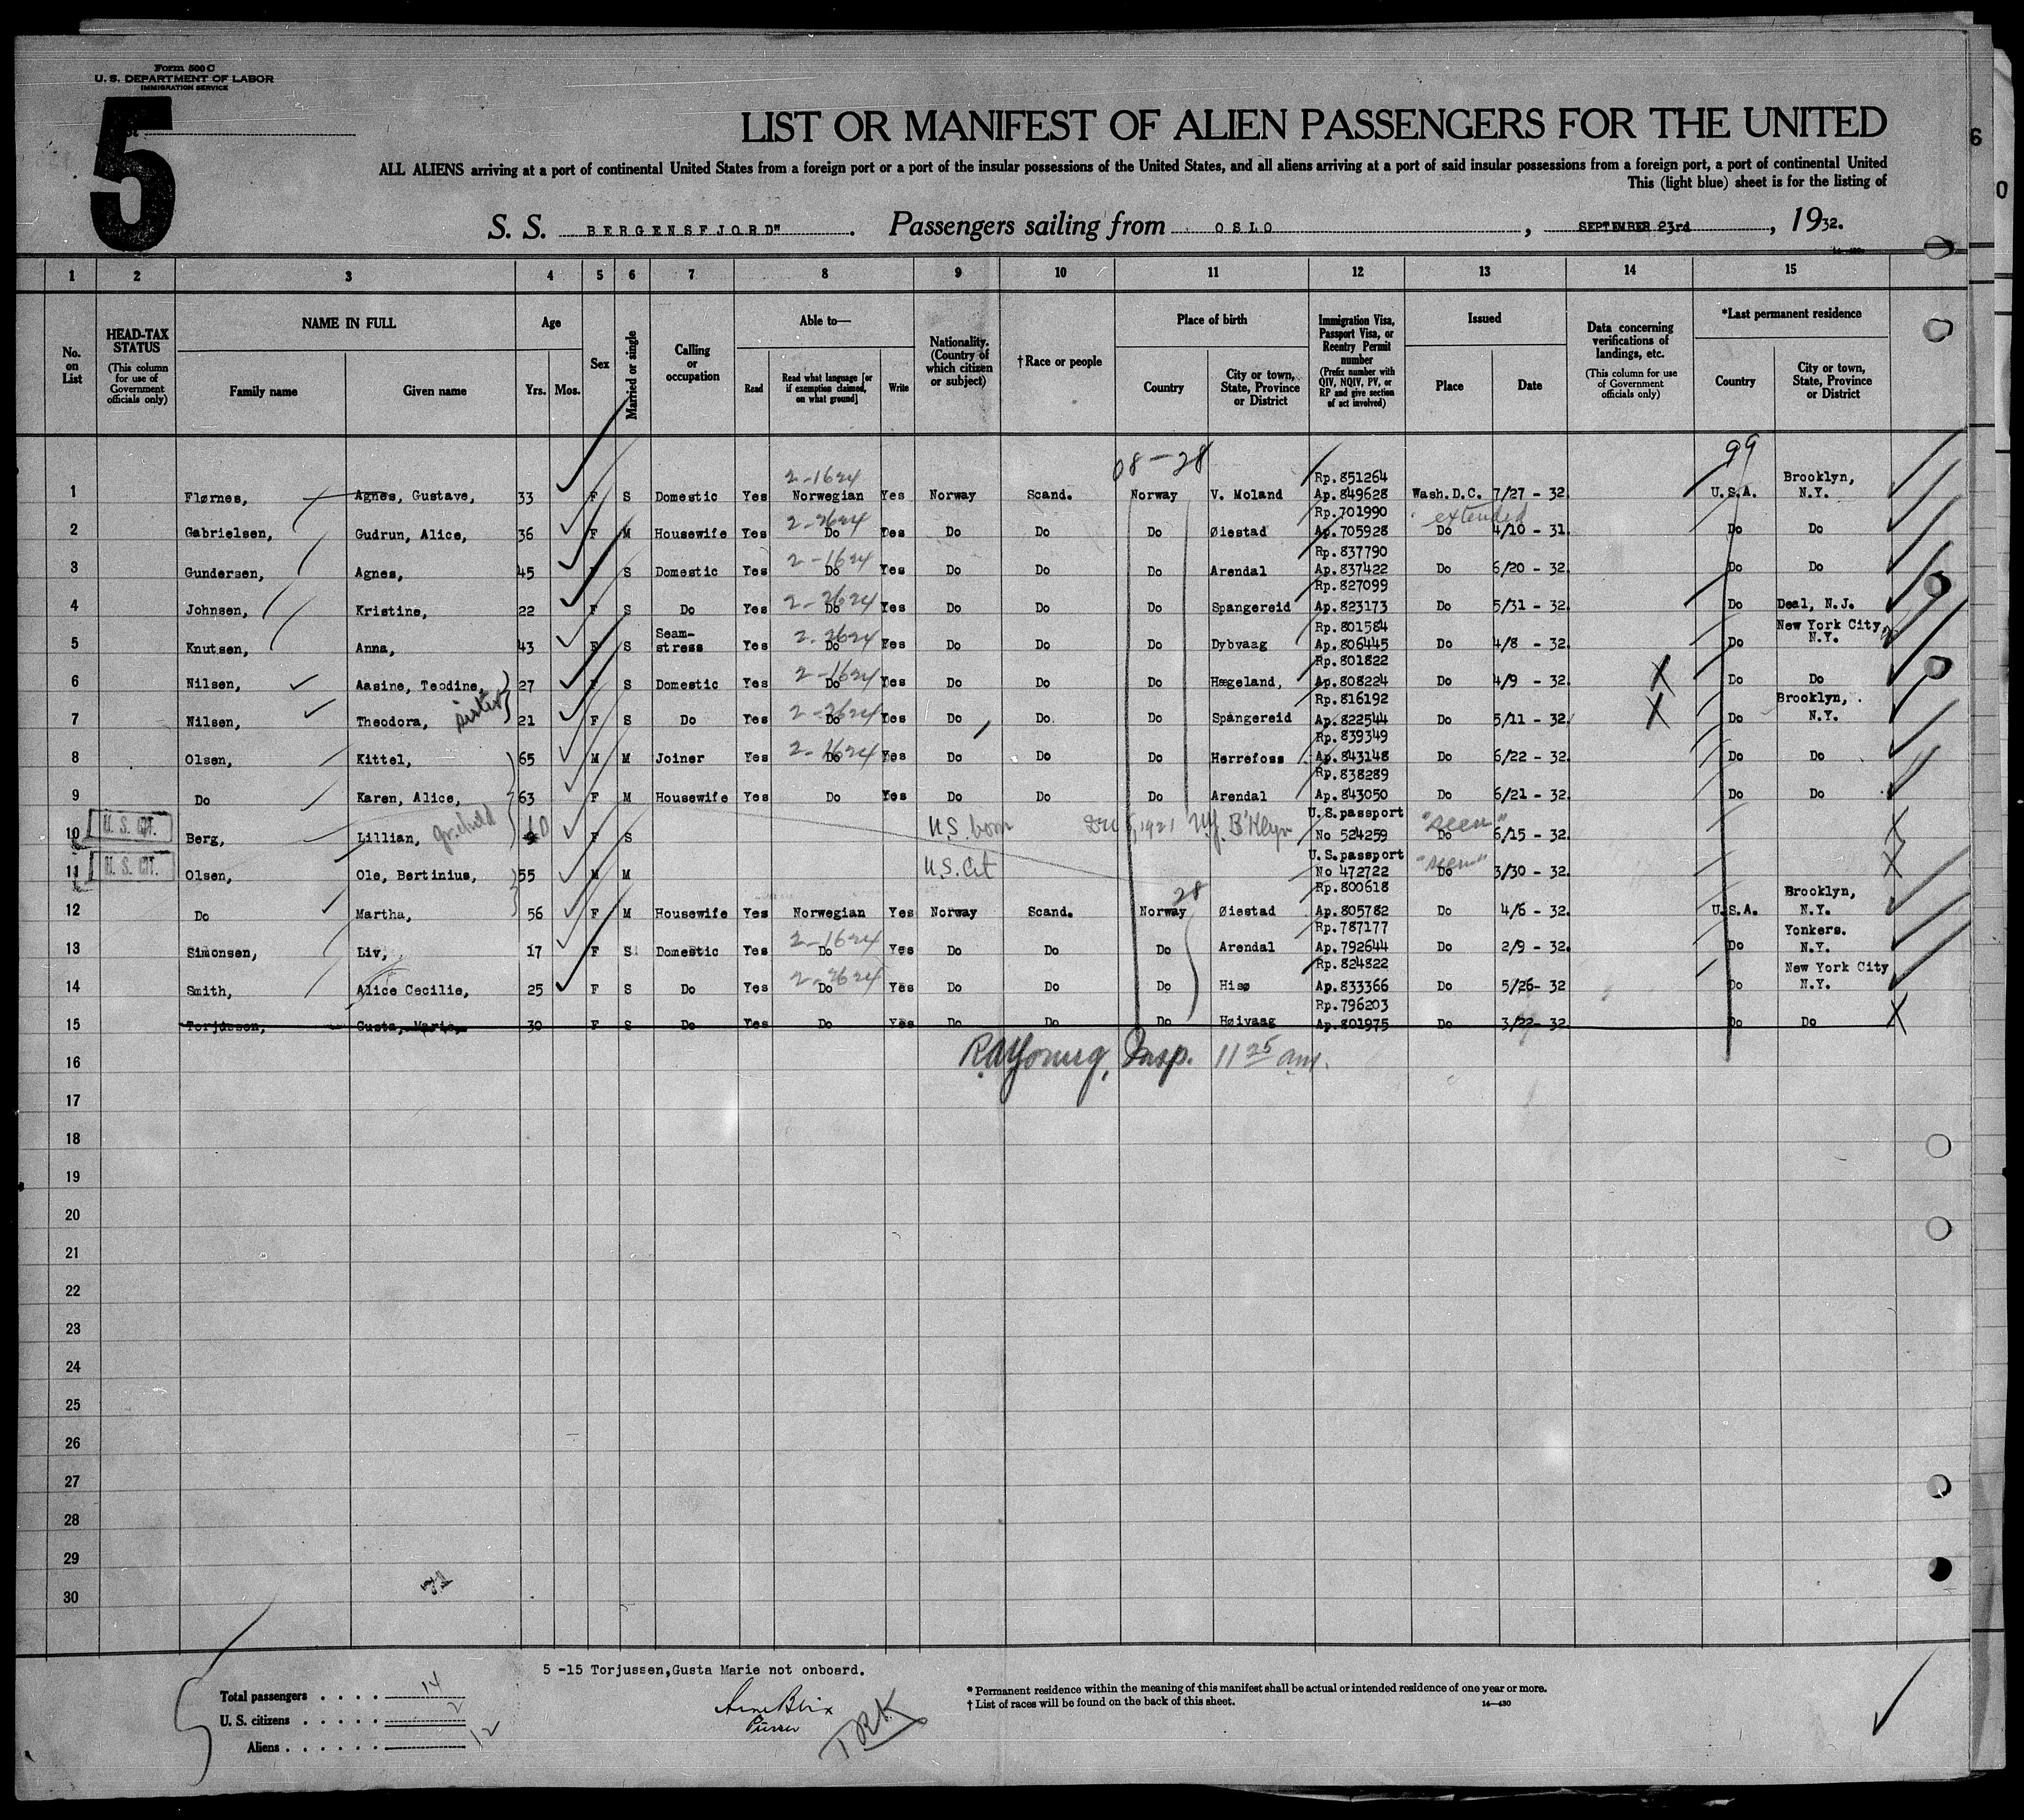 Form 500 C
U. S. DEPARTMENT OF LABOR
IMMIGRATION SERVICE
5
LIST OR MANIFEST OF ALIEN PASSENGERS FOR THE UNITED
ALL ALIENS arriving at a port of continental United States from a foreign port or a port of the insular possessions of the United States, and all aliens arriving at a port of said insular possessions from a foreign port, a port of continental United
This (light blue) sheet is for the listing of
S. S. BERGENSFJORD" . Passengers sailing from OSLO , SEPTEMBER 23rd , 1932.
1 2 3 4 5 6 7 8 9 10 11 12 13 14 15
No. on List
HEAD-TAX STATUS (This column for use of Government officials only)
NAME IN FULL Family name Given name
Age Yrs. Mos.
Sex
Married or single
Calling or occupation
Able to— Read Read what language [or if exemption claimed, on what ground] Write
Nationality. (Country of which citizen or subject)
† Race or people
Place of birth Country City or town, State, Province or District
Immigration Visa, Passport Visa, or Reentry Permit number (Prefix number with QIV, NQIV, PV, or RP and give section of act involved)
Issued Place Date
Data concerning verifications of landings, etc. (This column for use of Government officials only)
*Last permanent residence Country City or town, State, Province or District
08-28 99
2-1624 Rp.851264 Brooklyn,
1 Flørnes, Agnes, Gustave, 33 F S Domestic Yes Norwegian Yes Norway Scand. Norway V. Moland Ap.849628 Wash.D.C. 7/27 - 32 U.S.A. N.Y.
2-2624 Rp.701990 extended
2 Gabrielsen, Gudrun, Alice, 36 F M Housewife Yes Do Yes Do Do Do Øiestad Ap.705928 Do 4/10 - 31. Do Do
2-1624 Rp.837790
3 Gundersen, Agnes, 45 F S Domestic Yes Do Yes Do Do Do Arendal Ap.837422 Do 6/20 - 32. Do Do
2-2624 Rp.827099
4 Johnsen, Kristine, 22 F S Do Yes Do Yes Do Do Do Spangereid Ap.823173 Do 5/31 - 32. Do Deal, N.J.
2-2624 Rp.801584 New York City,
5 Knutsen, Anna, 43 F S Seam-stress Yes Do Yes Do Do Do Dybvaag Ap.806445 Do 4/8 - 32. Do N.Y.
2-1624 Rp.801822
6 Nilsen, Aasine, Teodine, 27 F S Domestic Yes Do Yes Do Do Do Hægeland, Ap.808224 Do 4/9 - 32. X Do Do
sister 2-2624 Rp.816192 Brooklyn,
7 Nilsen, Theodora, 21 F S Do Yes Do Yes Do Do Do Spangereid Ap.822544 Do 5/11 - 32. X Do N.Y.
2-1624 Rp.839349
8 Olsen, Kittel, 65 M M Joiner Yes Do Yes Do Do Do Herrefoss Ap.843148 Do 6/22 - 32. Do Do
Rp.838289
9 Do Karen, Alice, 63 F M Housewife Yes Do Yes Do Do Do Arendal Ap.843050 Do 6/21 - 32. Do Do
U.S.passport
10 U. S. CIT. Berg, Lillian, gr. child 10 F S U.S. born 1921 B'klyn No 524259 "seen" Do 6/15 - 32. X
U.S.passport
11 U. S. CIT. Olsen, Ole, Bertinius, 55 M M U.S. Cit No 472722 "seen" Do 3/30 - 32. X
28 Rp.800618 Brooklyn,
12 Do Martha, 56 F M Housewife Yes Norwegian Yes Norway Scand. Norway Øiestad Ap.805782 Do 4/6 - 32. U.S.A. N.Y.
2-1624 Rp.787177 Yonkers.
13 Simonsen, Liv, 17 F S Domestic Yes Do Yes Do Do Do Arendal Ap.792644 Do 2/9 - 32. Do N.Y.
2-2624 Rp.824822 New York City
14 Smith, Alice Cecilie, 25 F S Do Yes Do Yes Do Do Do Hisø Ap.833366 Do 5/26- 32 Do N.Y.
Rp.796203
15 Torjussen, Gusta, Marie, 30 F S Do Yes Do Yes Do Do Do Høivaag Ap.801975 Do 3/22- 32 Do Do X
16 RA Young, Insp. 11 25 am.
17
18
19
20
21
22
23
24
25
26
27
28
29
30
5 -15 Torjussen,Gusta Marie not onboard.
Total passengers . . . . 14
U. S. citizens . . . . . 2
Aliens . . . . . . 12
Purser
TRK
* Permanent residence within the meaning of this manifest shall be actual or intended residence of one year or more.
† List of races will be found on the back of this sheet. 14—430
6
0